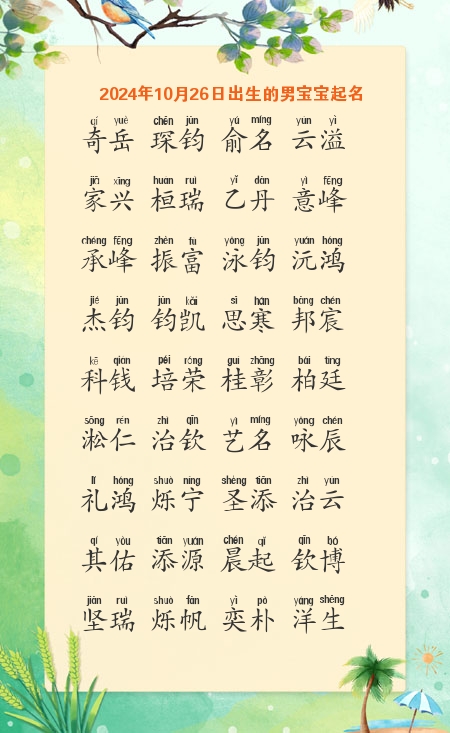 2024年10月26日出生的男宝宝起名
qí yuè chēn jūn yú míng yún yì
奇岳 琛钧 俞名 云溢
jiā xīng huán ruì yǐ dān yì fēng
家兴 桓瑞 乙丹 意峰
chéng fēng zhèn fù yǒng jūn yuán hóng
承峰 振富 泳钧 沅鸿
jié jūn jūn kǎi sī hán bāng chén
杰钧 钧凯 思寒 邦宸
kē qián péi róng guì zhāng bǎi tíng
科钱 培荣 桂彰 柏廷
sōng rén zhì qīn yì míng yǒng chén
淞仁 治钦 艺名 咏辰
lǐ hóng shuò níng shèng tiān zhì yún
礼鸿 烁宁 圣添 治云
qí yòu tiān yuán chén qǐ qīn bó
其佑 添源 晨起 钦博
jiān ruì shuò fān yì pǔ yáng shēng
坚瑞 烁帆 奕朴 洋生